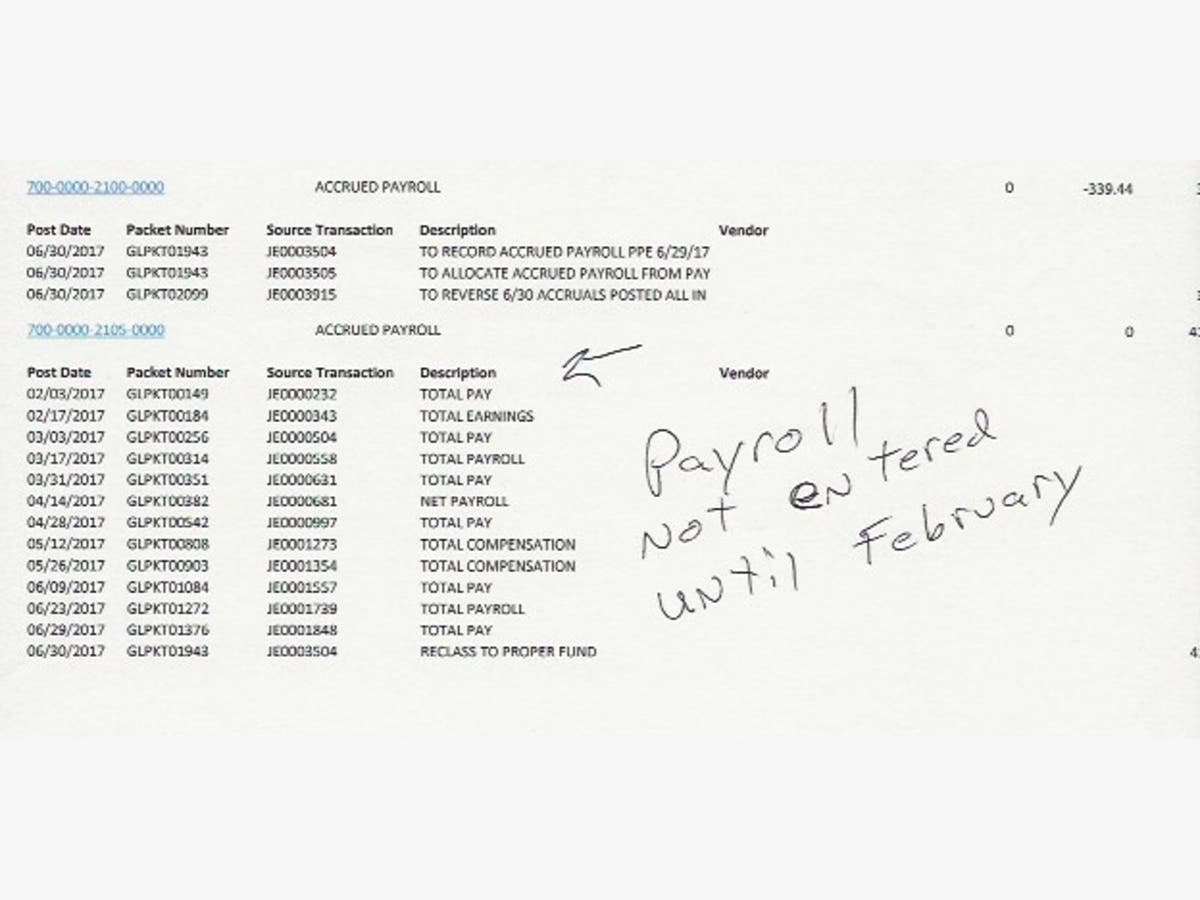 700-0000-2100-0000 ACCRUED PAYROLL 0 -339.44
Post Date Packet Number Source Transaction Description Vendor
06/30/2017 GLPKT01943 JE0003504 TO RECORD ACCRUED PAYROLL PPE 6/29/17
06/30/2017 GLPKT01943 JE0003505 TO ALLOCATE ACCRUED PAYROLL FROM PAY
06/30/2017 GLPKT02099 JE0003915 TO REVERSE 6/30 ACCRUALS POSTED ALL IN
700-0000-2105-0000 ACCRUED PAYROLL 0 0
Post Date Packet Number Source Transaction Description Vendor
02/03/2017 GLPKT00149 JE0000232 TOTAL PAY
02/17/2017 GLPKT00184 JE0000343 TOTAL EARNINGS
03/03/2017 GLPKT00256 JE0000504 TOTAL PAY
03/17/2017 GLPKT00314 JE0000558 TOTAL PAYROLL
03/31/2017 GLPKT00351 JE0000631 TOTAL PAY
04/14/2017 GLPKT00382 JE0000681 NET PAYROLL
04/28/2017 GLPKT00542 JE0000997 TOTAL PAY
05/12/2017 GLPKT00808 JE0001273 TOTAL COMPENSATION
05/26/2017 GLPKT00903 JE0001354 TOTAL COMPENSATION
06/09/2017 GLPKT01084 JE0001557 TOTAL PAY
06/23/2017 GLPKT01272 JE0001739 TOTAL PAYROLL
06/29/2017 GLPKT01376 JE0001848 TOTAL PAY
06/30/2017 GLPKT01943 JE0003504 RECLASS TO PROPER FUND
Payroll
not entered
until February